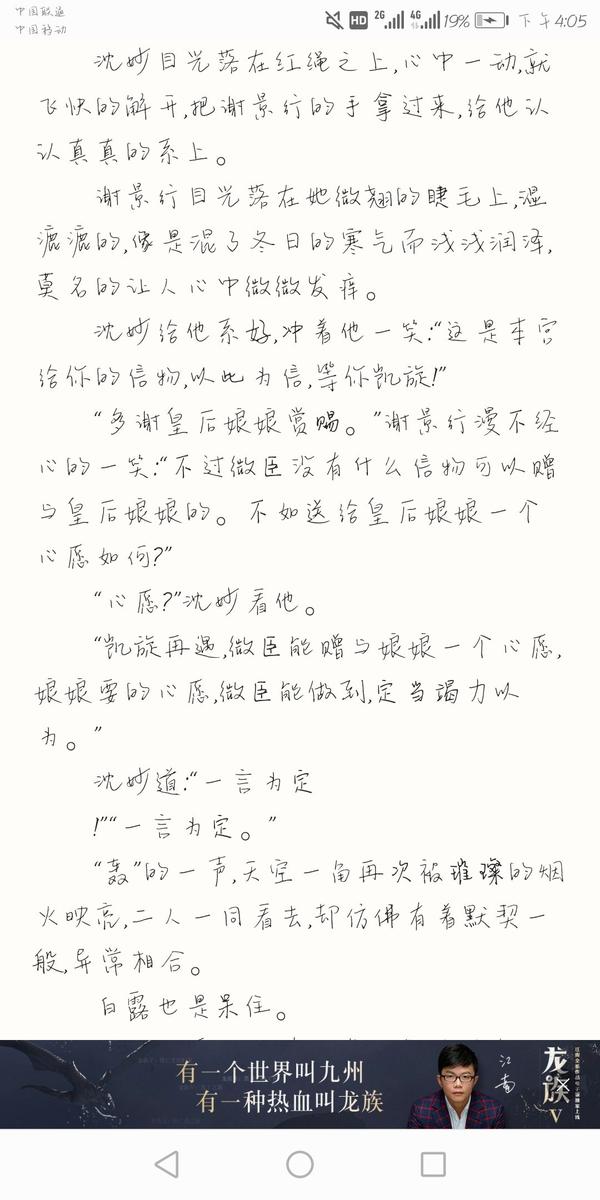 中国联通
中国移动
HD 2G 4G 19% 下午4:05
沈妙目光落在红绳之上,心中一动,就
飞快的解开,把谢景行的手拿过来,给他认
认真真的系上。
谢景行目光落在她微翘的睫毛上,湿
漉漉的,像是混了冬日的寒气而浅浅润泽,
莫名的让人心中微微发痒。
沈妙给他系好,冲着他一笑:“这是本宫
给你的信物,以此为信,等你凯旋!”
“多谢皇后娘娘赏赐。”谢景行漫不经
心的一笑:“不过微臣没有什么信物可以赠
与皇后娘娘的。不如送给皇后娘娘一个
心愿如何?”
“心愿?”沈妙看他。
“凯旋再遇,微臣能赠与娘娘一个心愿,
娘娘要的心愿,微臣能做到,定当竭力以
为。”
沈妙道:“一言为定
!”“一言为定。”
“轰”的一声,天空一角再次被璀璨的烟
火映亮,二人一同看去,却仿佛有着默契一
般,异常相合。
白露也是呆住。
有一个世界叫九州
有一种热血叫龙族
江南
龙族
V